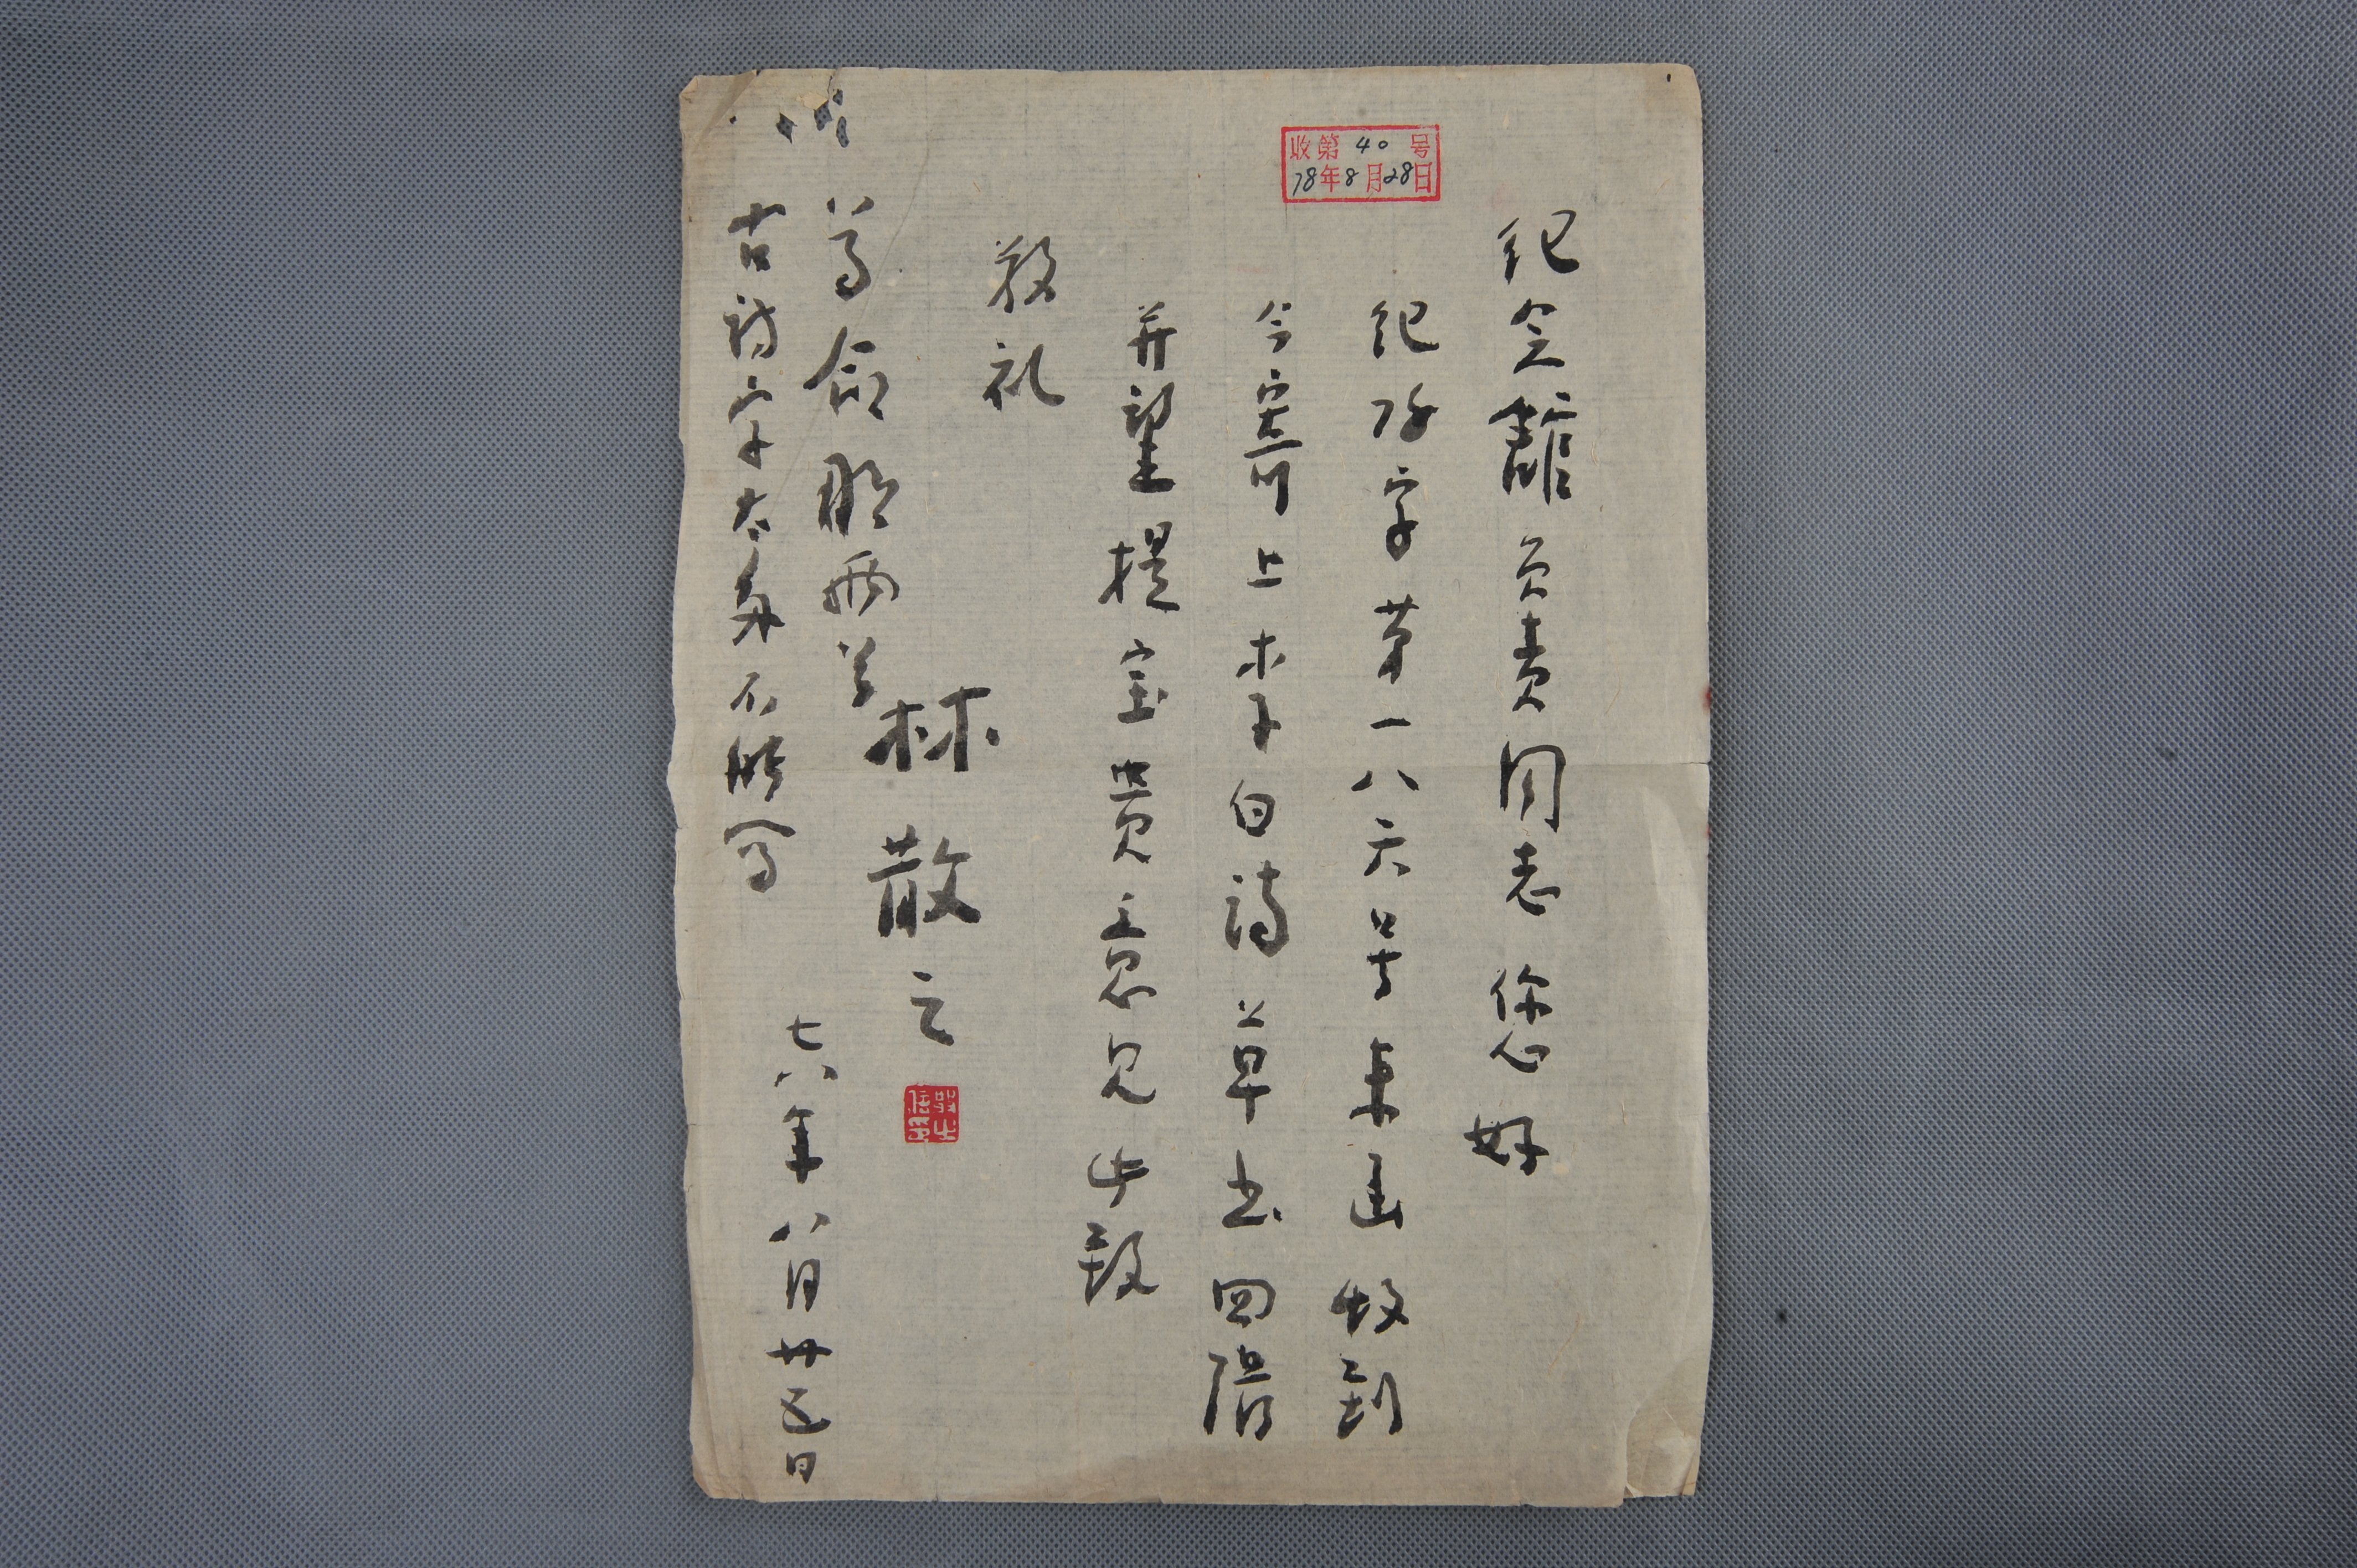 收第40号
78年8月28日
纪念舘负责同志您好
纪字第一八六号来函收到
今寄上李白诗草书四
并望提宝贵意见此致
敬礼
林散之
命那两首
古诗字太多不能写
七八年八月廿五日